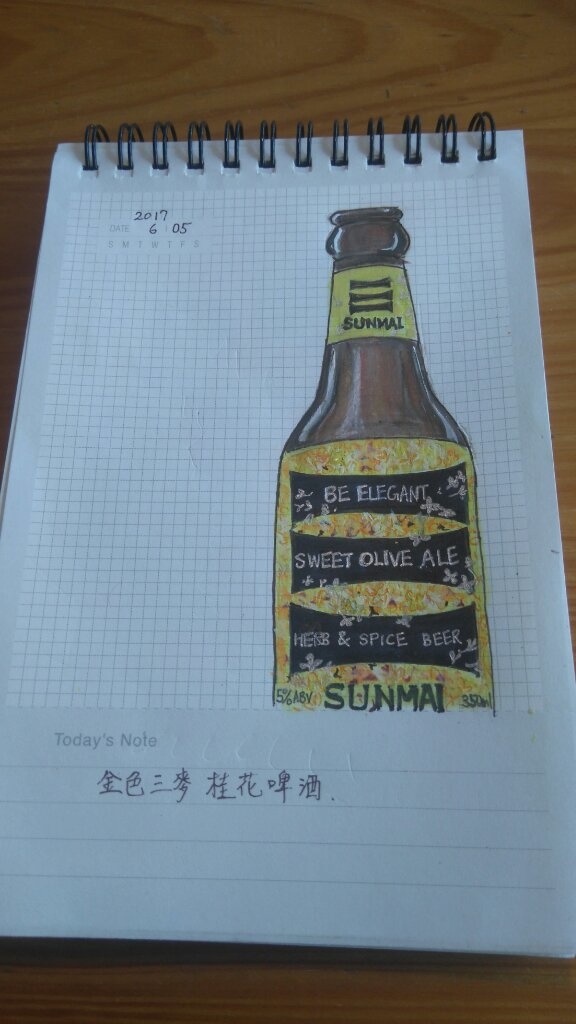 2017
DATE 6 05
S M T W T F S
SUNMAI
BE ELEGANT
SWEET OLIVE ALE
HERB & SPICE BEER
5%ABV SUNMAI 350ml
Today's Note
金色三麥 桂花啤酒.